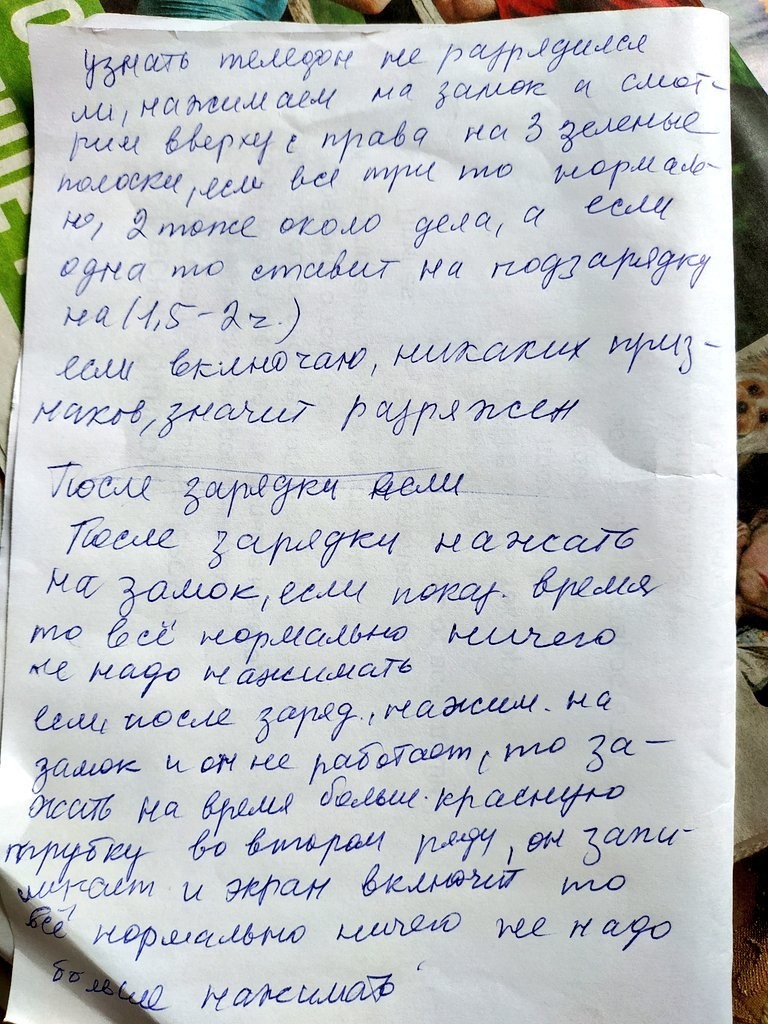 узнать телефон не разрядился
ли, нажимаем на замок и смот-
рим вверху с права на 3 зеленые
полоски, если все три то нормаль-
но, 2 тоже около дела, а если
одна то ставит на подзарядку
на (1,5-2ч.)
если включаю, никаких приз-
наков, значит разряжен
После зарядки если
После зарядки нажать
на замок, если показ. время
то всё нормально ничего
не надо нажимать
если после заряд., нажим. на
замок и он не работает, то за-
жать на время больш. красную
трубку во втором ряду, он запи-
ликает и экран включит то
всё нормально ничего не надо
больше нажимать